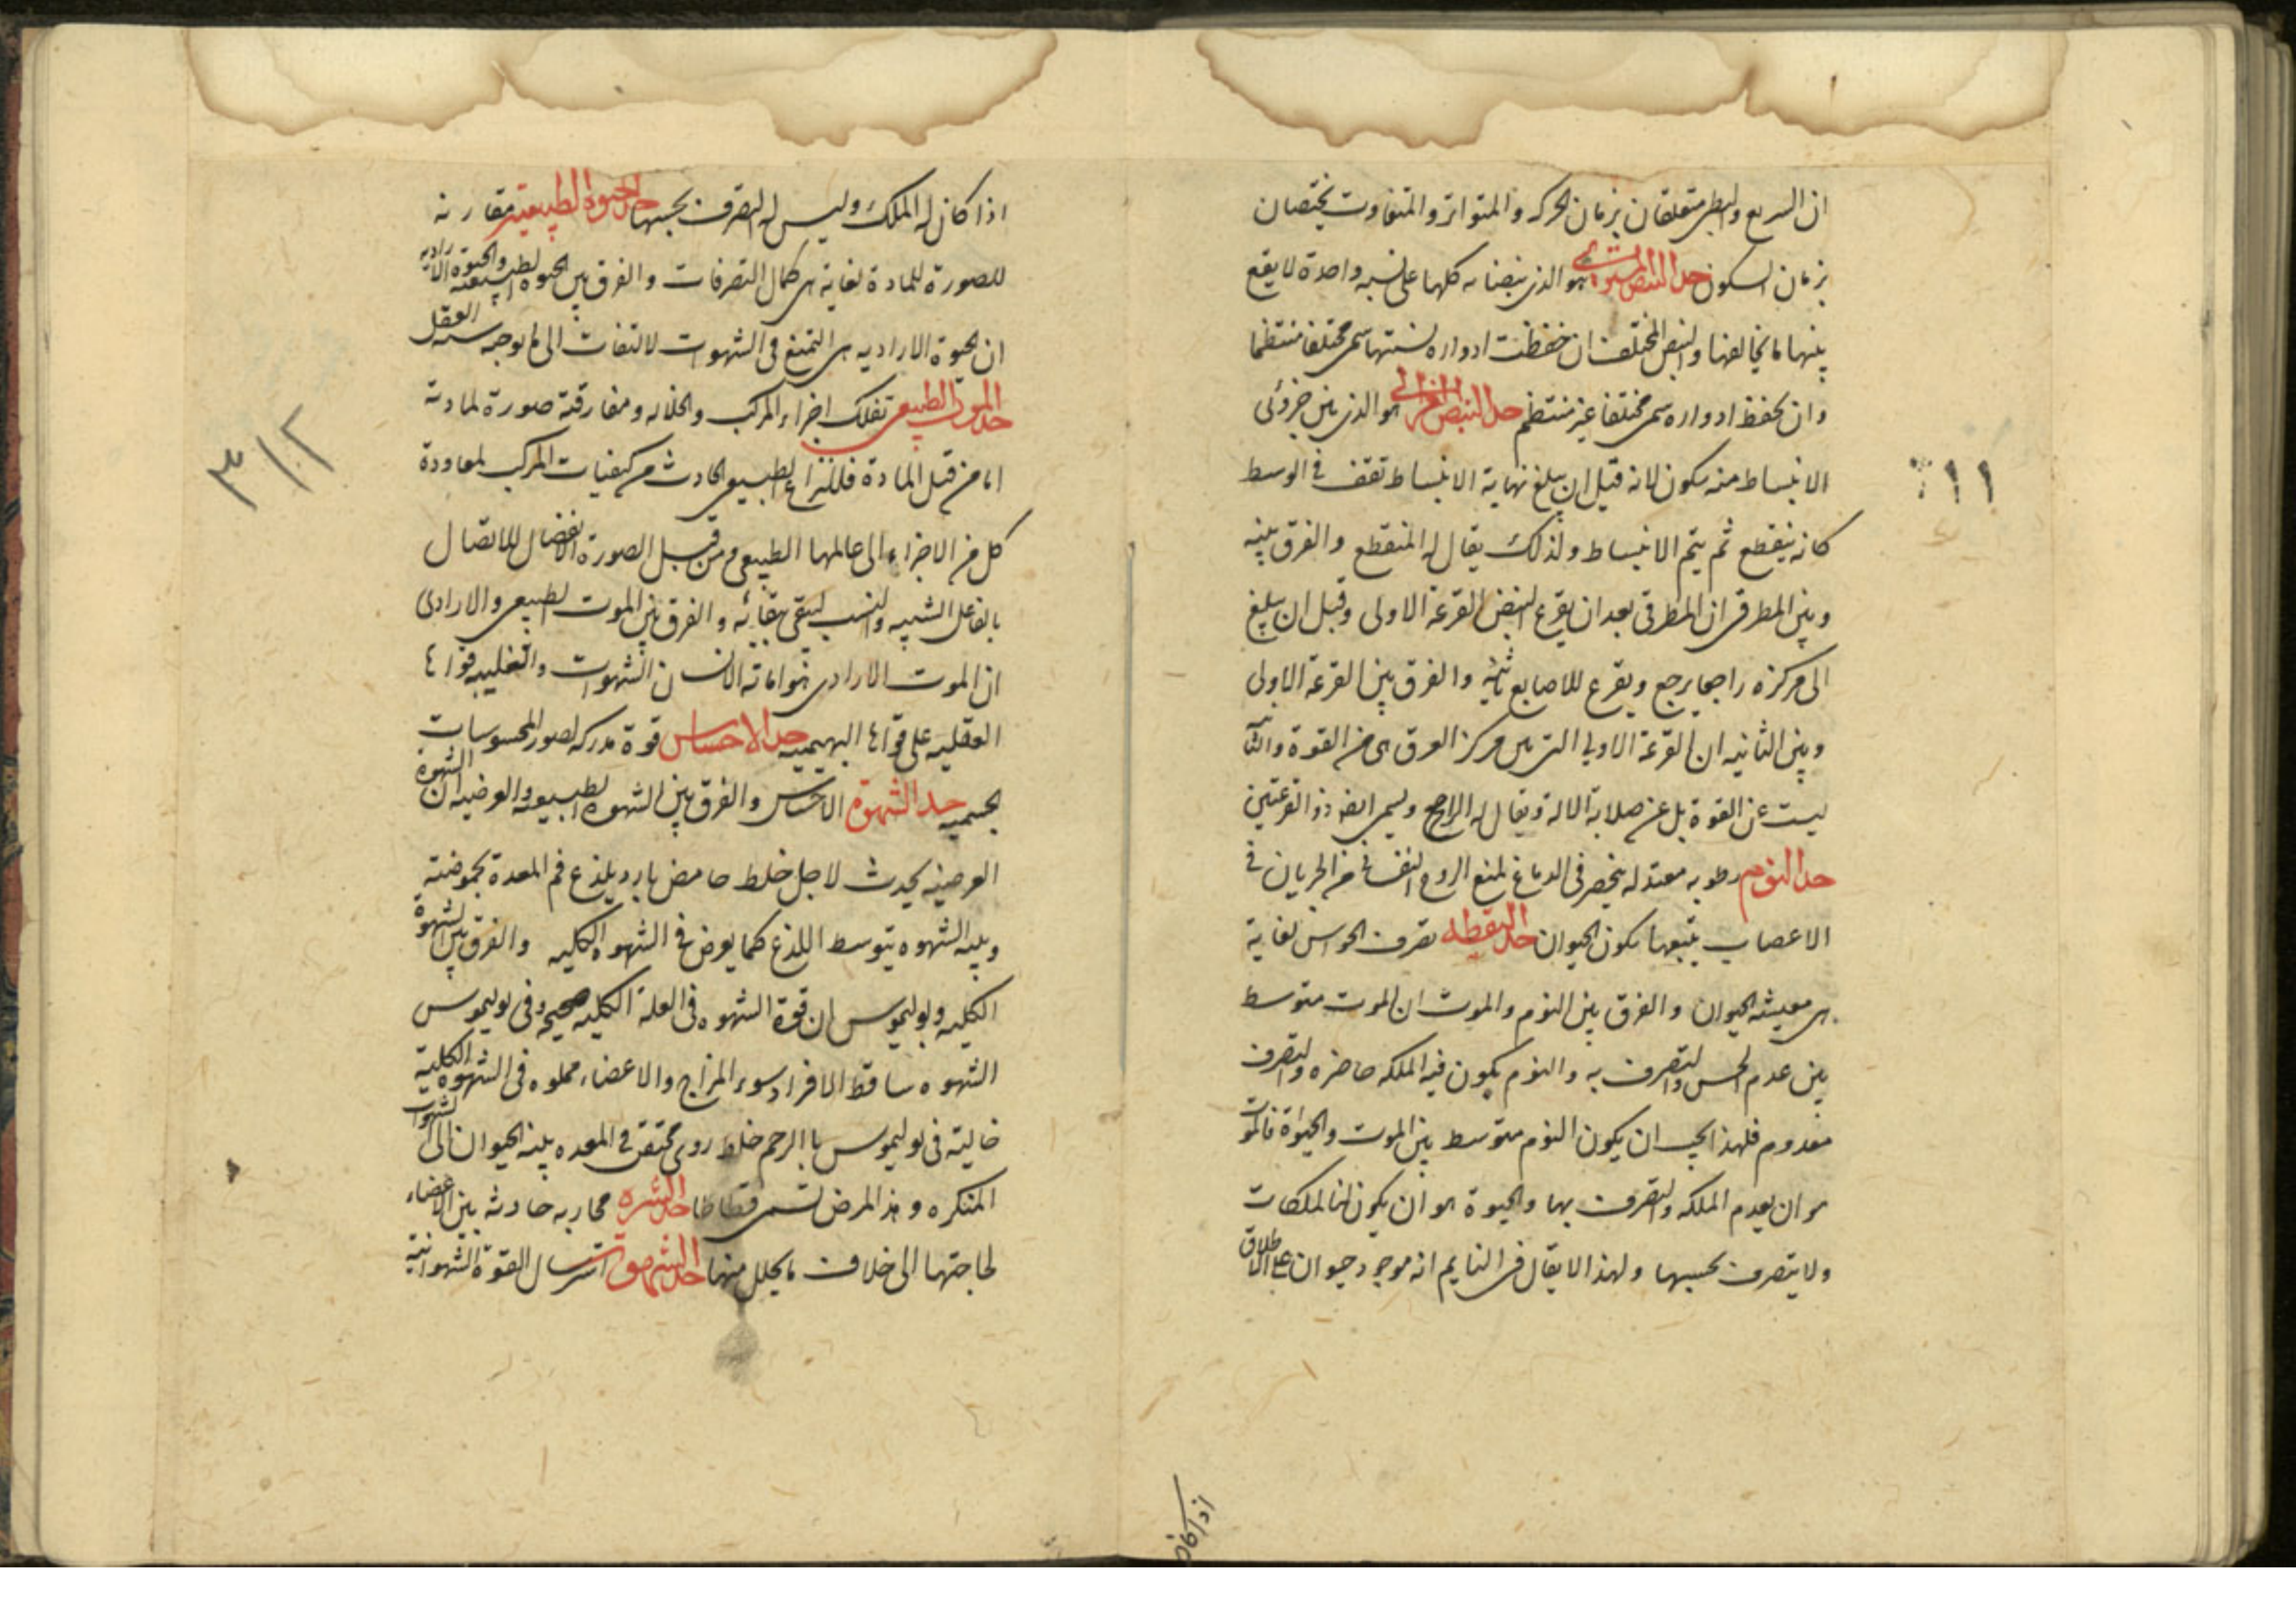 ان السريع والبطي متعلقان بزمان الحركه والمتواتر والمتفاوت يختصان
بزمان السكون حد النبض المستوى هو الذى نبضاته كلها على نسبه واحدة لا يقع
بينها ما يخالفها والنبض المختلف ان حفظت ادواره نسبتها سمى مختلفا منتظما
وان لم يحفظ ادواره سمى مختلفا غير منتظم حد النبض الغزالى هو الذى بين جزوئى
الانبساط منه سكون لانه قبل ان يبلغ نهاية الانبساط تقف فى الوسط
كانه ينقطع ثم يتم الانبساط ولذلك يقال له المنقطع والفرق بينه
وبين المطرقى ان المطرقى بعد ان يقرع النبض القرعة الاولى وقبل ان يبلغ
الى مركزه راجعا يرجع ويقرع للاصابع ثانية والفرق بين القرعة الاولى
وبين الثانيه ان القرعة الاولى التى من مركز العرق هى من القوة والثانية
ليست عن القوة بل عن صلابة الالة ويقال له الراجع ويسمى ايضا ذو القرعتين
حد النوم رطوبه معتدله ينحصر فى الدماغ لمنع الروح النفسانى من الجريان فى
الاعصاب يتبعها سكون الحيوان حد اليقظه تصرف الحواس لغاية
هى معيشه الحيوان والفرق بين النوم والموت ان الموت متوسط
بين عدم الحس والتصرف به والنوم يكون فيه الملكه حاضره والتصرف
معدوم فلهذا يجب ان يكون النوم متوسط بين الموت والحيوة فالموت
هو ان يعدم الملكه والتصرف بها والحيوة هو ان يكون لنا الملكات
ولا يتصرف بحسبها ولهذا لا يقال فى النايم انه موجود حيوان على الاطلاق
اذا كان
١١
اذا كان له الملك وليس له التصرف بحسبها حد الحيوة الطبيعية مقارنه
للصورة للمادة لغاية هى كمال التصرفات والفرق بين الحيوه الطبيعية والحيوة الاراديه
ان الحيوة الاراديه هى التمتع فى الشهوات لالتفات الى ما يوجبه العقل
حد الموت الطبيعى تفكك اجزاء المركب وانحلاله ومفارقة صورة لمادته
اما من قبل المادة فللنزاع الطبيعى الحادث من كيفيات المركب لمعاودة
كل من الاجزاء الى عالمها الطبيعى ومن قبل الصورة الانفصال للاتصال
بالفاعل الشبيه والنسب ليبقى ببقائه والفرق بين الموت الطبيعى والارادى
ان الموت الارادى هو اماتة الانسان الشهوات وتغليبه قواها
العقليه على قواها البهيميه حد الاحساس قوة مدركه لصور المحسوسات
بجسميه حد الشهوة الاحساس والفرق بين الشهوه الطبيعيه والعرضيه ان الشهوة
العرضيه يحدث لاجل خلط حامض بارد يلذع فم المعدة بحموضته
وينبه الشهوه بتوسط اللذع كما يعرض فى الشهوه الكلبيه والفرق بين الشهوة
الكلبيه وبوليموس ان قوة الشهوه فى العله الكلبيه صحيحه وفى بوليموس
الشهوه ساقط لافراد سوء المزاج والاعضاء مملوه فى الشهوه الكلبية
خالية فى بوليموس باالرحم خلط روى محتقن فى المعده ينبه الحيوان الى الشهوات
المنكره وهذا المرض تسمى قطاطا حد الشره محاربه حادثه بين الاعضاء
لحاجتها الى خلاف ما يحلل منها حد الشهوة استرسال القوة الشهوانية
٣١٢